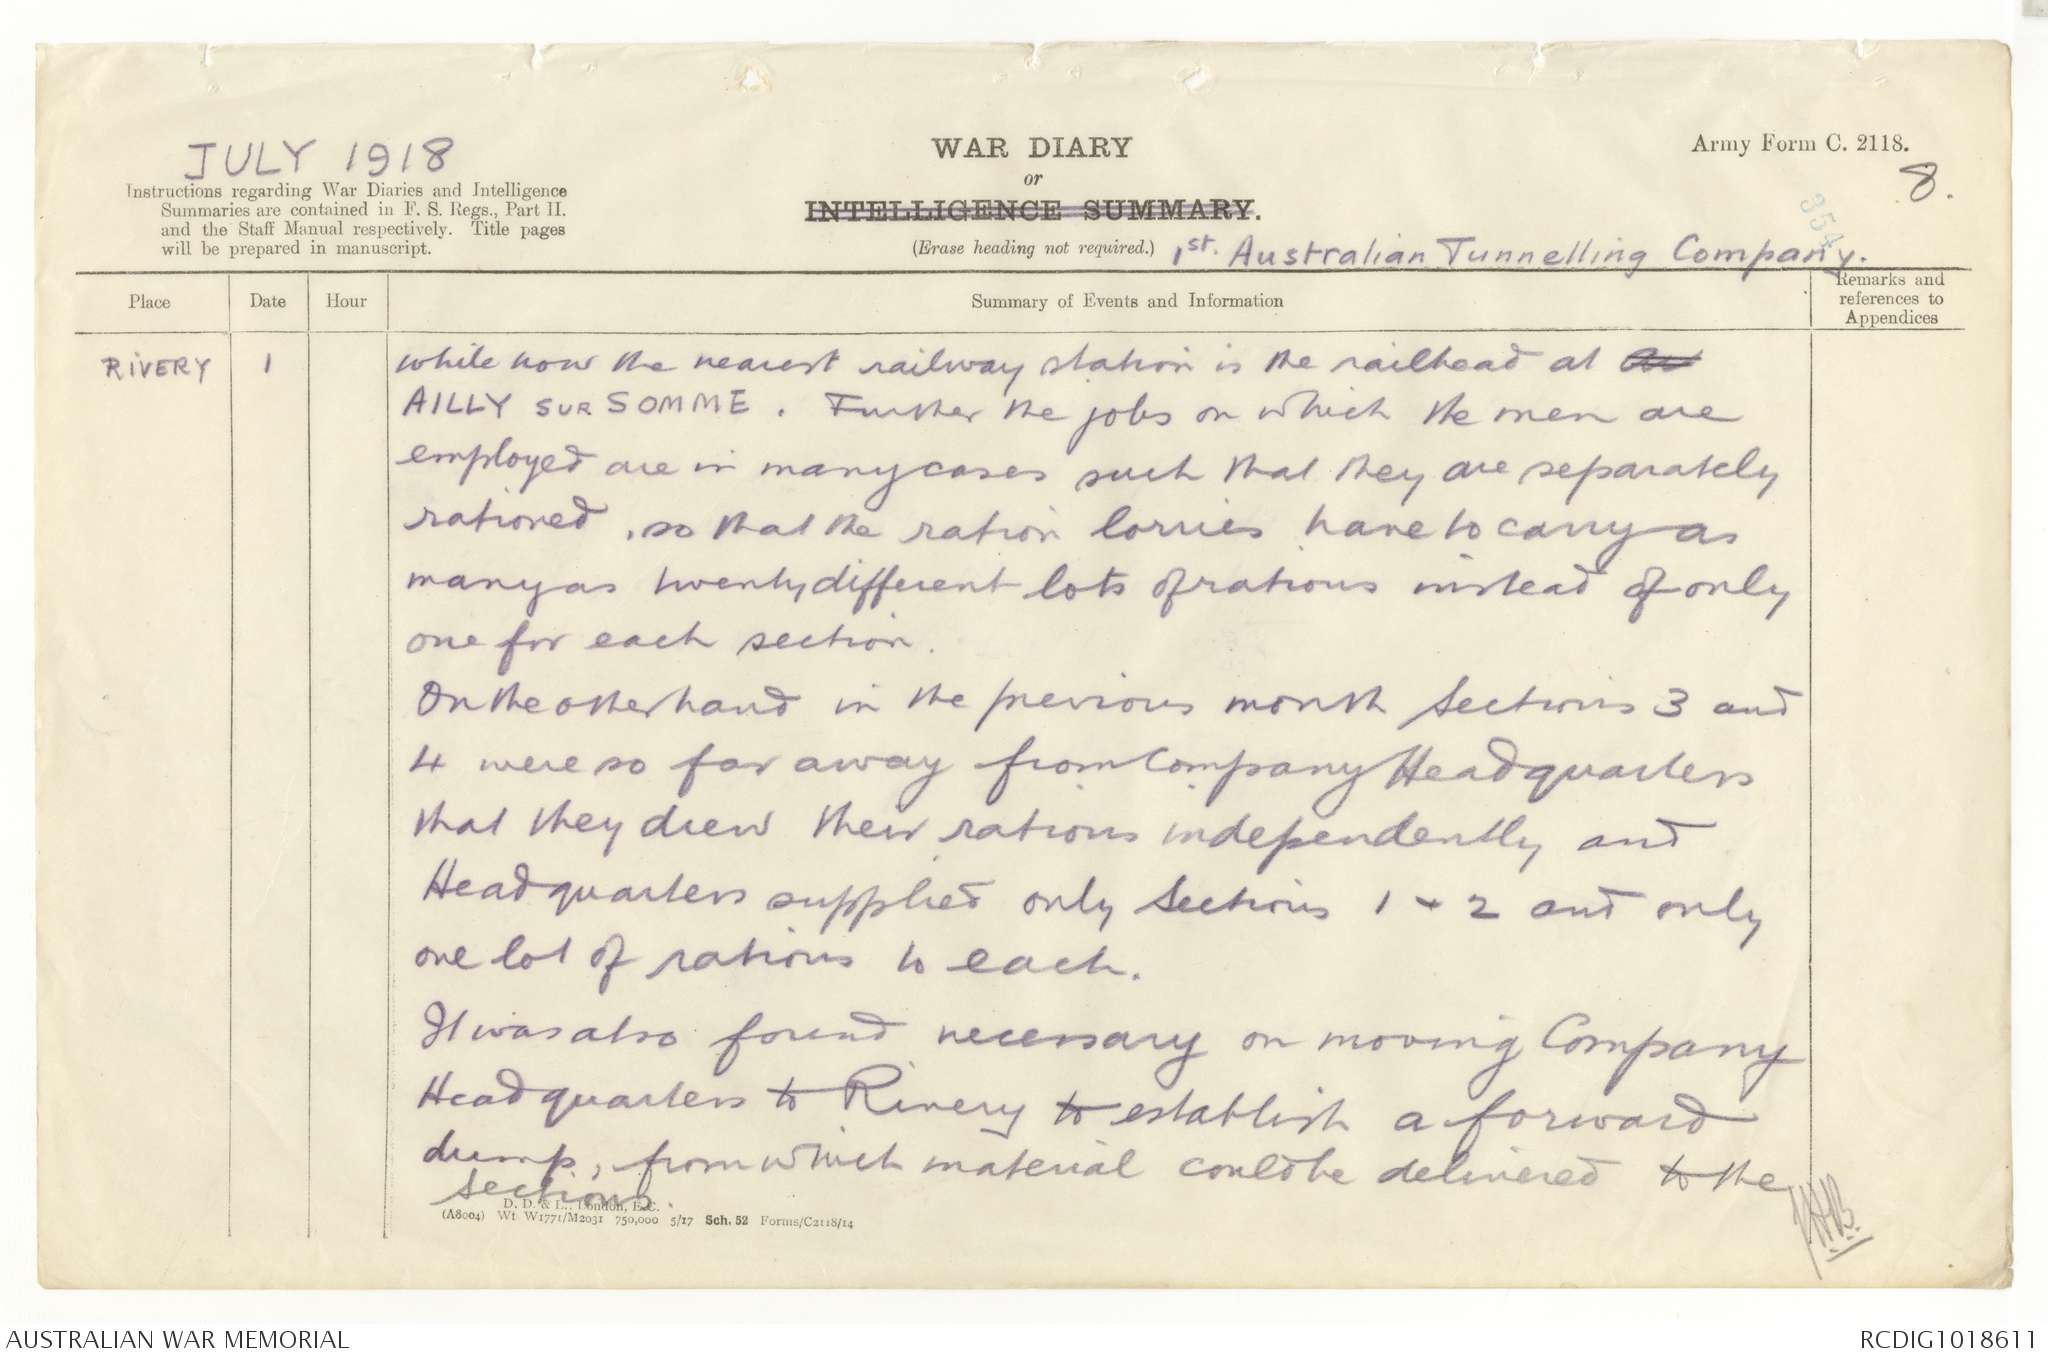 JULY 1918
Instructions regarding War Diaries and Intelligence
Summaries are contained in F. S. Regs., Part II.
and the Staff Manual respectively. Title pages
will be prepared in manuscript.
WAR DIARY
or
INTELLIGENCE SUMMARY.
(Erase heading not required.)
1st. Australian Tunnelling Company.
Army Form C. 2118.
8.
354
Place
Date
Hour
Summary of Events and Information
Remarks and
references to
Appendices
RIVERY
1
while now the nearest railway station is the railhead at
AILLY SUR SOMME. Further the jobs on which the men are
employed are in many cases such that they are separately
rationed, so that the ration lorries have to carry as
many as twenty different lots of rations instead of only
one for each section.
On the other hand in the previous month Sections 3 and
4 were so far away from Company Headquarters
that they drew their rations independently and
Headquarters supplied only Sections 1 + 2 and only
one lot of rations to each.
It was also found necessary on moving Company
Headquarters to Rivery to establish a forward
dump, from which material could be delivered to the
sections.
D. D. & L., London, E.C.
(A8004) Wt W1771/M2031 750,000 5/17 Sch. 52 Forms/C2118/14
AUSTRALIAN WAR MEMORIAL
RCDIG1018611